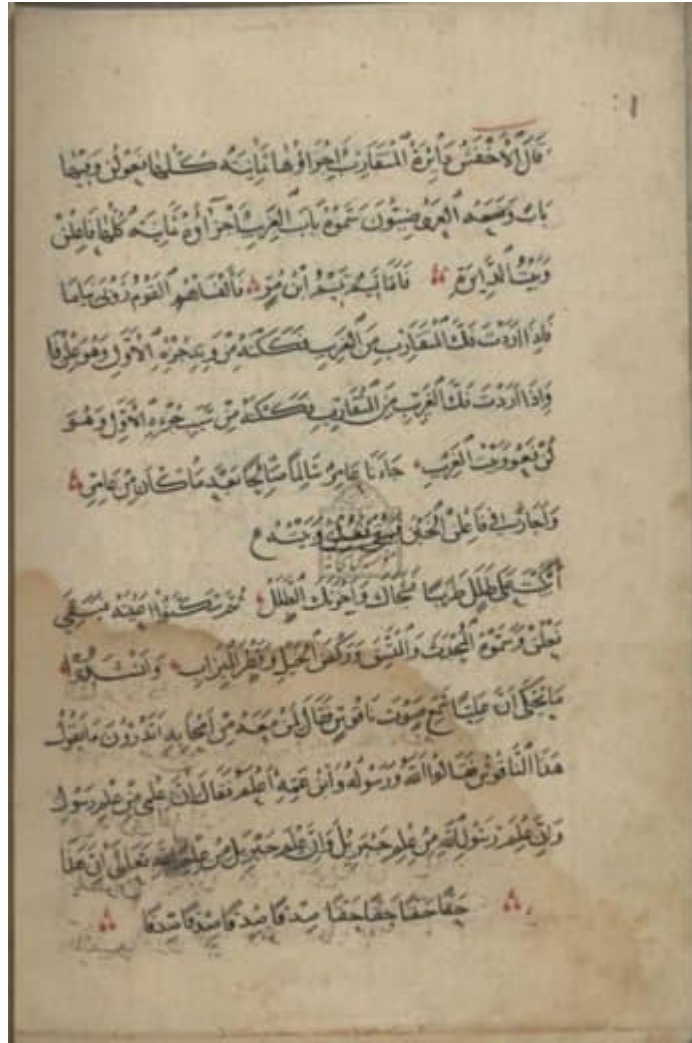 قال الأخفش دائرة المتقارب اجزاؤها ثمانية كلها فعولن وفيها
باب وضعه العروضيون سموه باب الغريب اجزاؤه ثمانية كلها فاعلن
وبيت الدائرة فاما تميم تميم ابن مر فألفاهم القوم روبى نياما
فاذا اردت فك المتقارب من الغريب فككته من وتد جزءه الأول وهو علن فا
واذا اردت فك الغريب من المتقارب فككته من سبب جزءه الأول وهو
لن فعو وبيت الغريب جاءنا عامر سالما صالحا بعد ما كان من عامر
واجازوا في فاعلن الخبن فيبقى فعلن وبيته
أبكيت على طلل طربا فشجاك واحزنك الطلل فيبقى
فعلن وسموه المحدث والمتسق وركض الخيل وقطر الميزاب وانشدوا
ما يحكى أن عليا سمع صوت ناقوس فقال لمن معه من أصحابه اتدرون ما يقول
هذا الناقوس فقالوا الله ورسوله وابن عمه أعلم فقال ان علمي من علم رسول
وان علم رسول الله من علم جبريل وان علم جبريل من علم الله تعالى ان هذا
حقا حقا حقا حقا صدقا صدقا صدقا صدقا